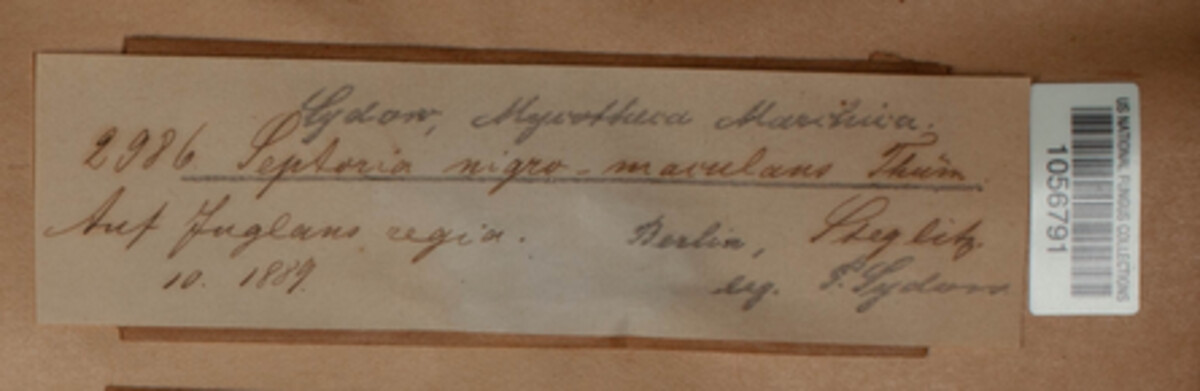 Sydow, Mycotheca Marchica.
2986 Septoria nigro-maculans Thüm.
Auf Juglans regia. Berlin, Steglitz.
10. 1889. leg. P. Sydow
US NATIONAL FUNGUS COLLECTIONS
1056791